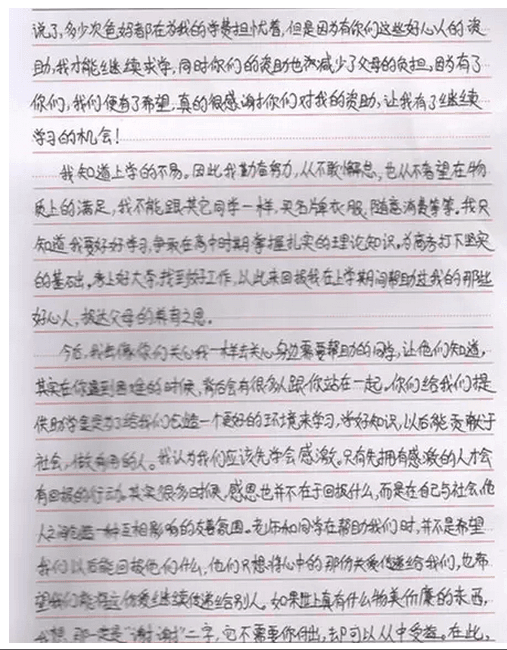 说了,多少次爸妈都在为我的学费担忧着,但是因为有你们这些好心人的资
助,我才能继续求学,同时你们的资助也减少了父母的负担,因为有了
你们,我们便有了希望,真的很感谢你们对我的资助,让我有了继续
学习的机会!
我知道上学的不易。因此我勤奋努力,从不敢懈怠,也从不奢望在物
质上的满足,我不能跟其它同学一样,买名牌衣服,随意消费等等。我只
知道我要好好学习,争取在高中时期掌握扎实的理论知识,为高考打下坚实
的基础,考上好大学,找到好工作,以此来回报我在上学期间帮助过我的那些
好心人,报达父母的养育之恩。
今后,我会像你们关心我一样去关心身边需要帮助的同学,让他们知道,
其实在你遇到困难的时候,背后会有很多人跟你站在一起。你们给我们提
供助学金是为了给我们创造一个更好的环境来学习,学好知识,以后能贡献于
社会,做有用的人。我认为我们应该先学会感激。只有先拥有感激的人才会
有回报的行动。其实很多时候,感恩也并不在于回报什么,而是在自己与社会、他
人之间创造一种互相影响的友善氛围。老师和同学在帮助我们时,并不是希望
我们以后能回报他们什么,他们只想将心中的那份关爱传递给我们,也希
望我们能将这份爱继续传递给别人。如果世上真有什么物美价廉的东西,
我想,那一定是“谢谢”二字,它不需要你付出,却可以从中受益。在此,